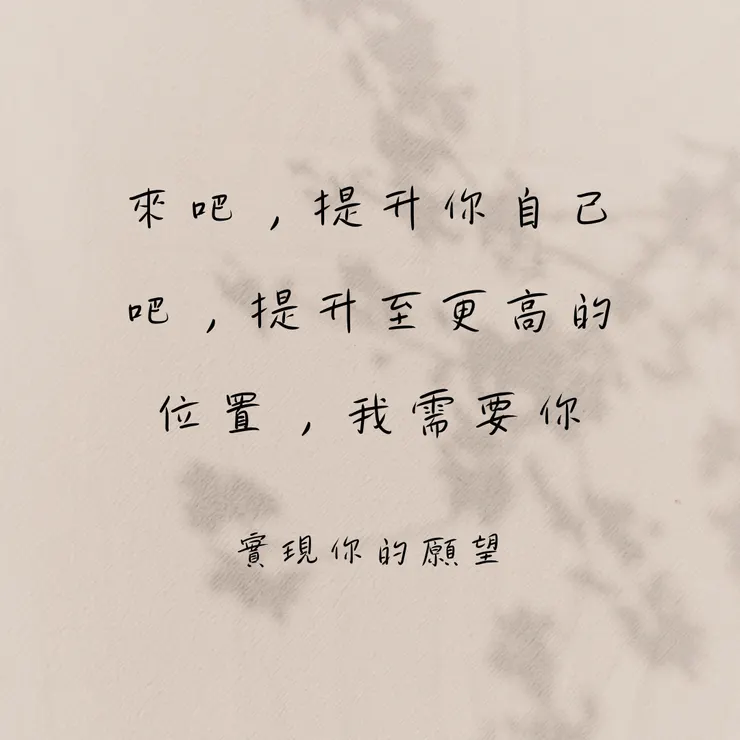 來吧，提升你自己
吧，提升至更高的
位置，我需要你
實現你的願望